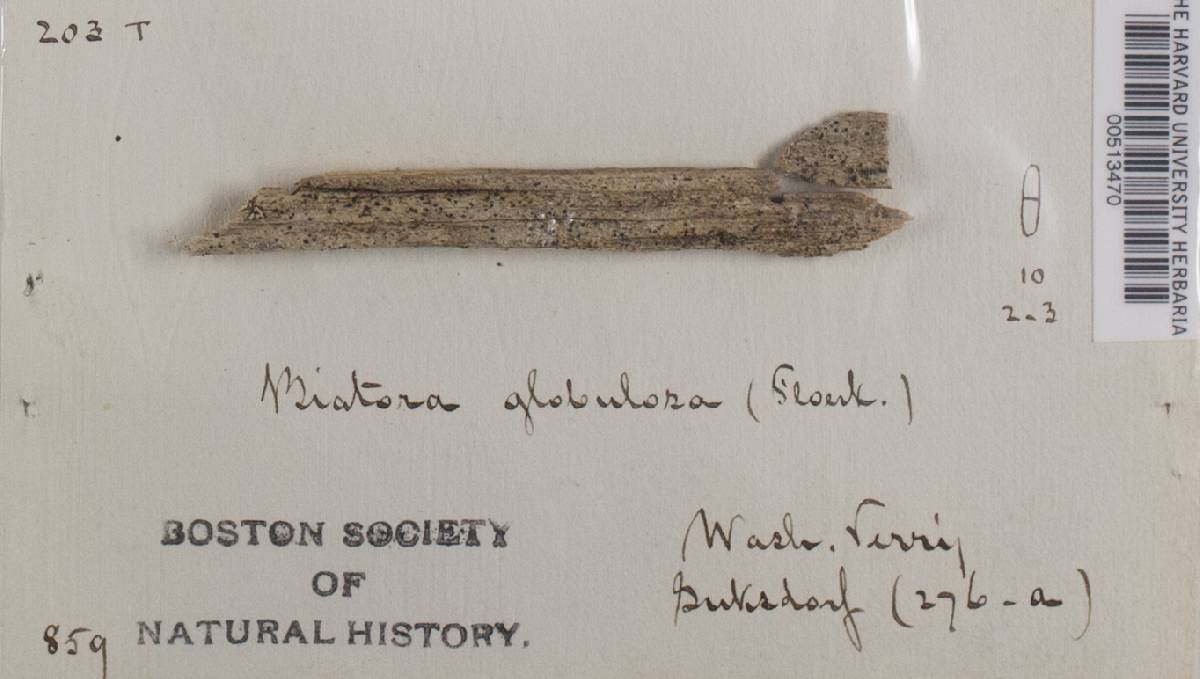 203 T
THE HARVARD UNIVERSITY HERBARIA
00513470
10
2-3
Biatora globulosa (Floerk.)
Wash. Terr'y
Suksdorf (276-a)
BOSTON SOCIETY
OF
NATURAL HISTORY.
859